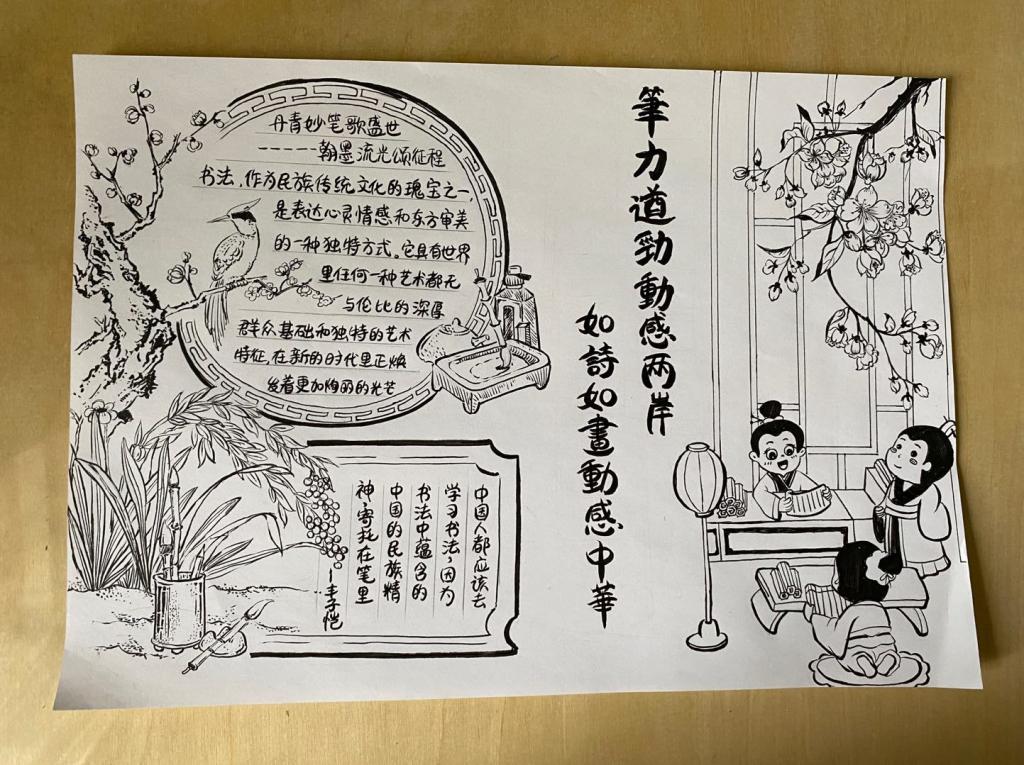 丹青妙笔歌盛世
------翰墨流光颂征程
书法,作为民族传统文化的瑰宝之一
是表达心灵情感和东方审美
的一种独特方式。它具有世界
里任何一种艺术都无
与伦比的深厚
群众基础和独特的艺术
特征,在新的时代里正焕
发着更加绚丽的光芒
筆力遒勁動感两岸
如詩如畫動感中華
中国人都应该去
学习书法,因为
书法中蕴含的
中国的民族精
神寄托在笔里
—丰子恺